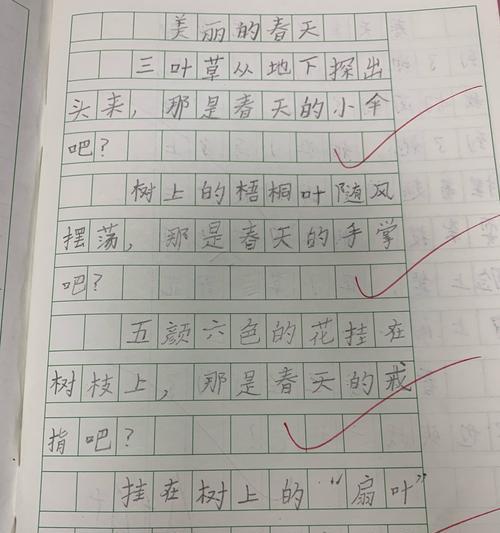 美丽的春天
三叶草从地下探出
头来，那是春天的小伞
吧？
树上的梧桐叶随风
摆荡，那是春天的手掌
吧？
五颜六色的花挂在
树枝上，那是春天的戒
指吧？
挂在树上的“扇叶”